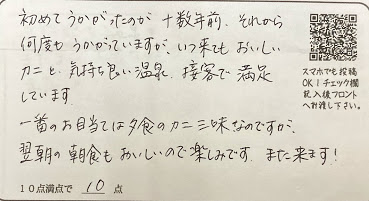 初めてうかがったのが十数年前、それから
何度もうかがっていますが、いつ来てもおいしい
カニと、気持ち良い温泉、接客で満足
しています
一番のお目当ては夕食のカニ三昧なのですが、
翌朝の朝食もおいしいので楽しみです。また来ます!
10点満点で 10 点
スマホでも投稿
OK!チェック欄
記入後フロント
へお渡し下さい。